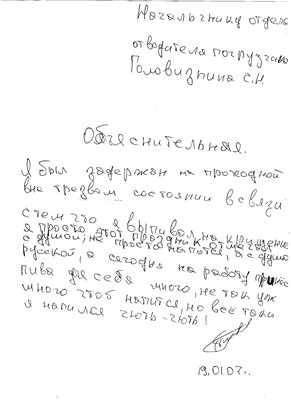 Начальнику отдела
от водителя погрузчика
Головизнина С.Н.
Объяснительная.
Я был задержан на проходной
вне трезвом состоянии в связи
с тем что я выпивал на крищение
я просто этот праздник отмечаю
с душой, не просто напится, а с душой
русской, а сегодня на работу принёс
пива для себя много, не так уж
много чтоб напится, но всё таки
я напился чють-чють!
19.01.07г.